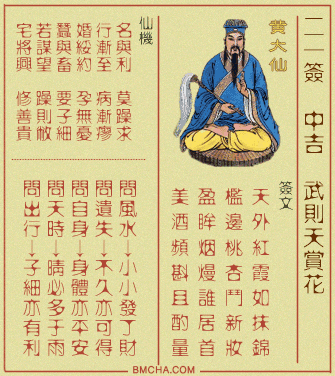 二一簽 中吉 武則天賞花
黄大仙
簽文
天外紅霞如抹錦
檻邊桃杏鬥新妝
盈眸烟熳誰居首
美酒頻斟且酌量
仙機
名與利 莫躁求
行漸至 病漸瘳
婚綏約 孕無憂
蠶與畜 要子細
若謀望 躁則敝
宅將興 修善貴
問風水→小小發了財
問遺失→不久亦可得
問自身→身體亦平安
問天時→晴必多于雨
問出行→子細亦有利
BMCHA.COM